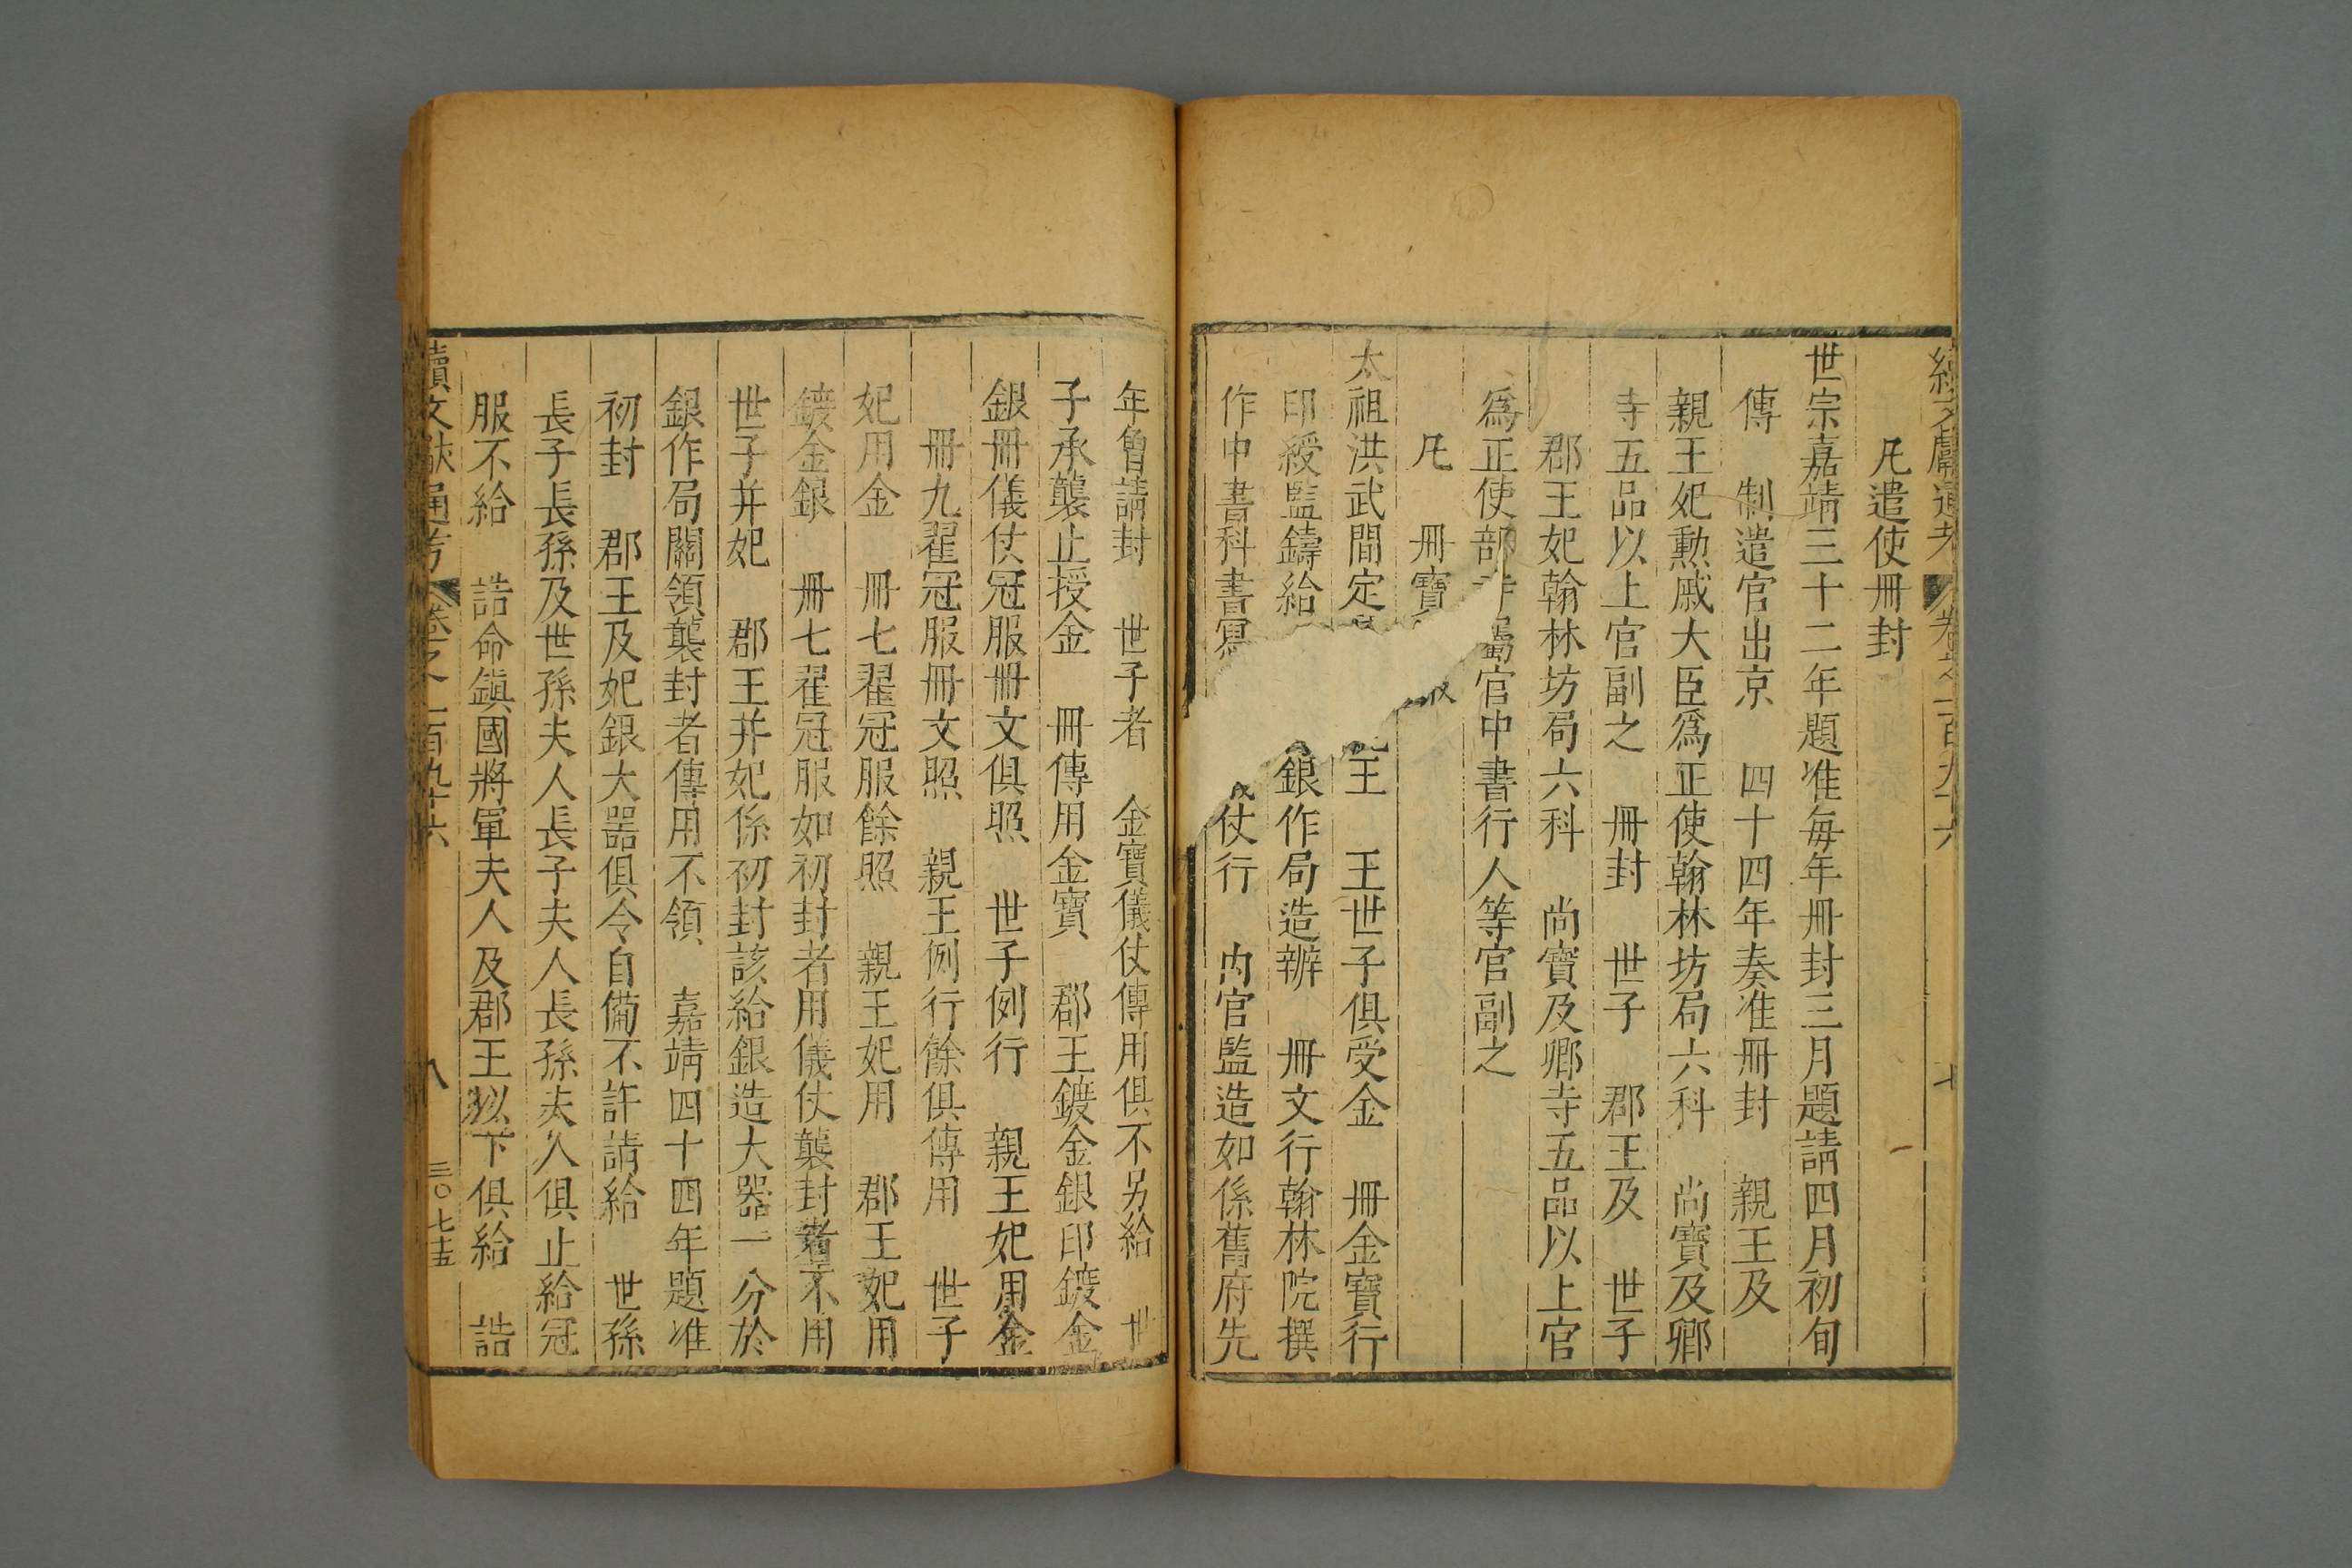 續文獻通考 卷之一百九十六 七
凡遣使冊封
世宗嘉靖三十二年題准毎年冊封三月題請四月初旬
傳 制遣官出京 四十四年奏准冊封 親王及
親王妃勲戚大臣爲正使翰林坊局六科 尚寶及卿
寺五品以上官副之 冊封 世子 郡王及 世子
郡王妃翰林坊局六科 尚寶及卿寺五品以上官
爲正使部寺屬官中書行人等官副之
凡 冊寶
太祖洪武間定 王 王世子俱受金 冊金寶行
印綬監鑄給 銀作局造辦 冊文行翰林院撰
作中書科書寫 仗行 内官監造如係舊府先
年曾請封 世子者 金寶儀仗傳用俱不另給 世
子承襲止授金 冊傳用金寶 郡王鍍金銀印鍍金
銀冊儀仗冠服冊文俱照 世子例行 親王妃用金
冊九翟冠服冊文照 親王例行餘俱傳用 世子
妃用金 冊七翟冠服餘照 親王妃用 郡王妃用
鍍金銀 冊七翟冠服如初封者用儀仗襲封者不用
世子并妃 郡王并妃係初封該給銀造大器一分於
銀作局關領襲封者傳用不領 嘉靖四十四年題准
初封 郡王及妃銀大器俱令自備不許請給 世孫
長子長孫及世孫夫人長子夫人長孫夫人俱止給冠
服不給 誥命鎭國將軍夫人及郡王以下俱給 誥
續文獻通考 卷之一百九十六 八 三〇七十五